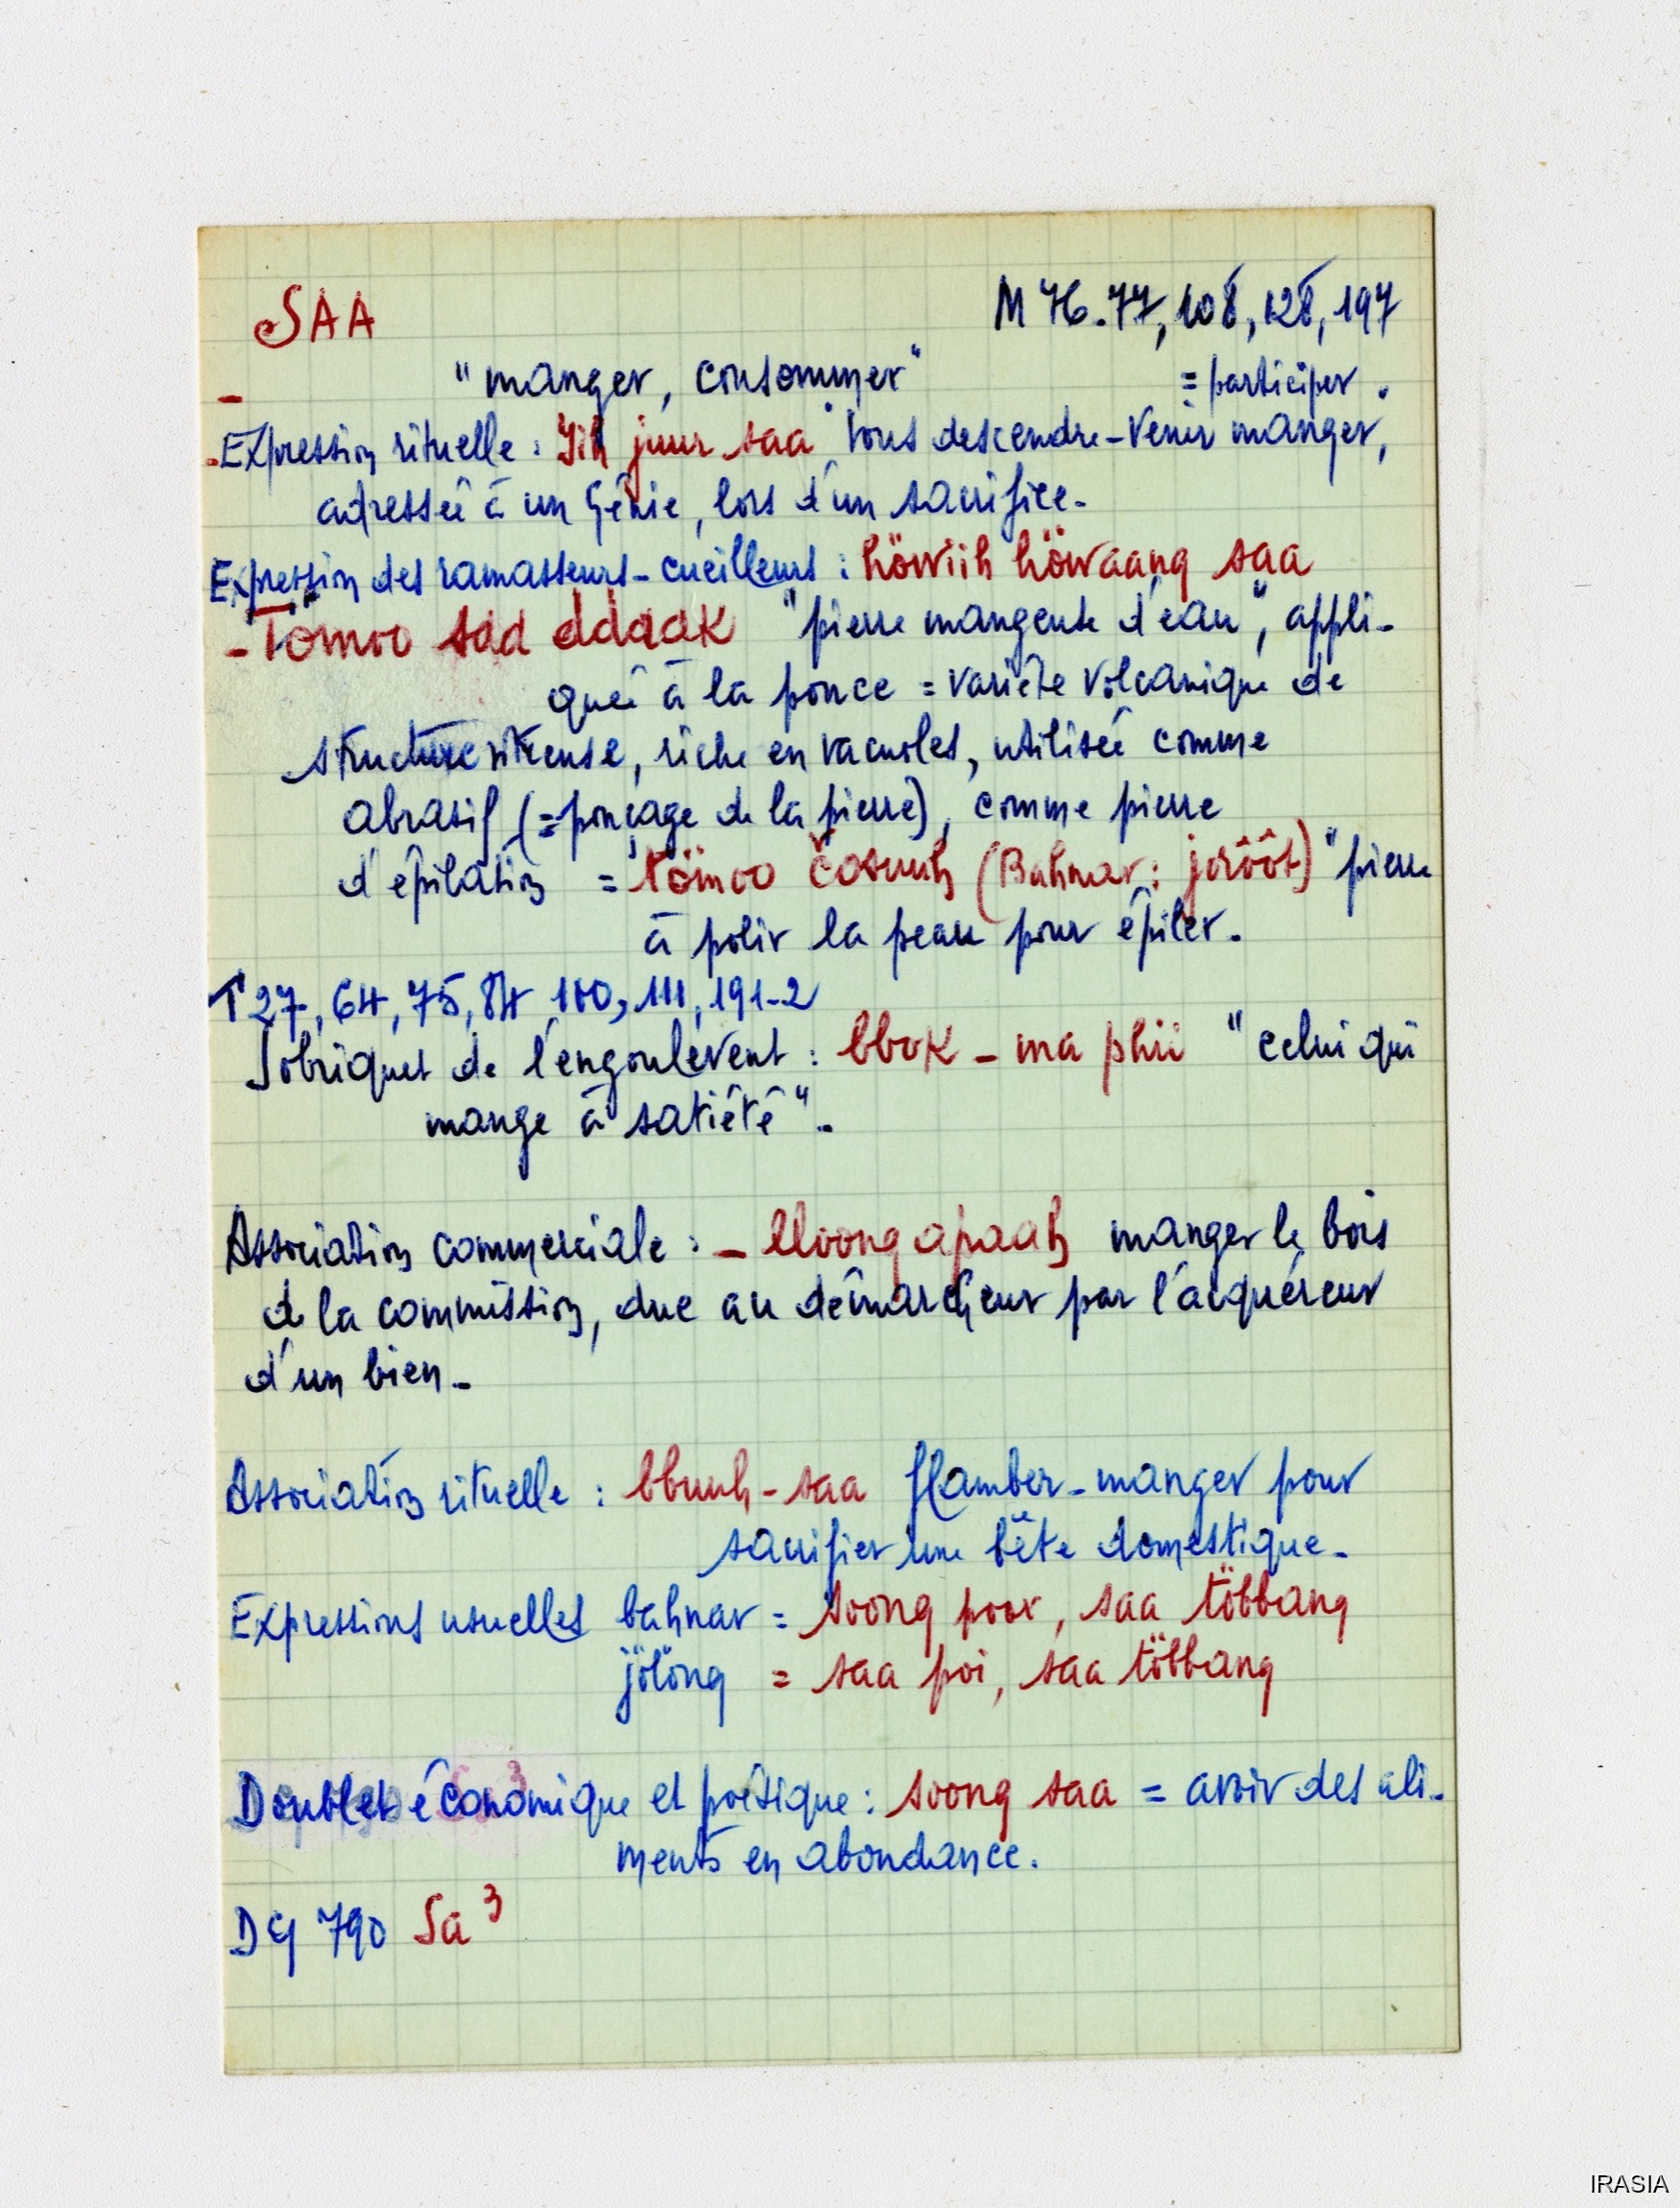 SAA M 76.77, 108, 128, 197
"manger, consommer" = participer.
- Expression rituelle : Yih juur saa "vous descendre-venir manger,
adressée à un Génie, lors d'un sacrifice.
Expression des ramasseurs-cueilleurs : höwiih höwaang saa
- Tömoo saa ddaak "pierre mangeuse d'eau", appli-
quée à la ponce = variété volcanique de
structure vitreuse, riche en vacuoles, utilisée comme
abrasif (= ponçage de la pierre), comme pierre
d'épilation = tömoo čosuuh (Bahnar : jorôôt) "pierre
à polir la peau pour épiler.
T 27, 64, 75, 84, 100, 111, 191-2
Sobriquet de l'engoulevent : bbok - ma phii "celui qui
mange à satiété".
Association commerciale : - lloong apaah manger le bois
de la commission, due au démarcheur par l'acquéreur
d'un bien -
Association rituelle : bbuuh - saa flamber-manger pour
sacrifier une bête domestique.
Expressions usuelles bahnar = soong poor, saa többang
jölöng = saa poi, saa többang
Doublet économique et poétique : soong saa = avoir des ali-
ments en abondance.
DG 790 Sa 3
IRASIA